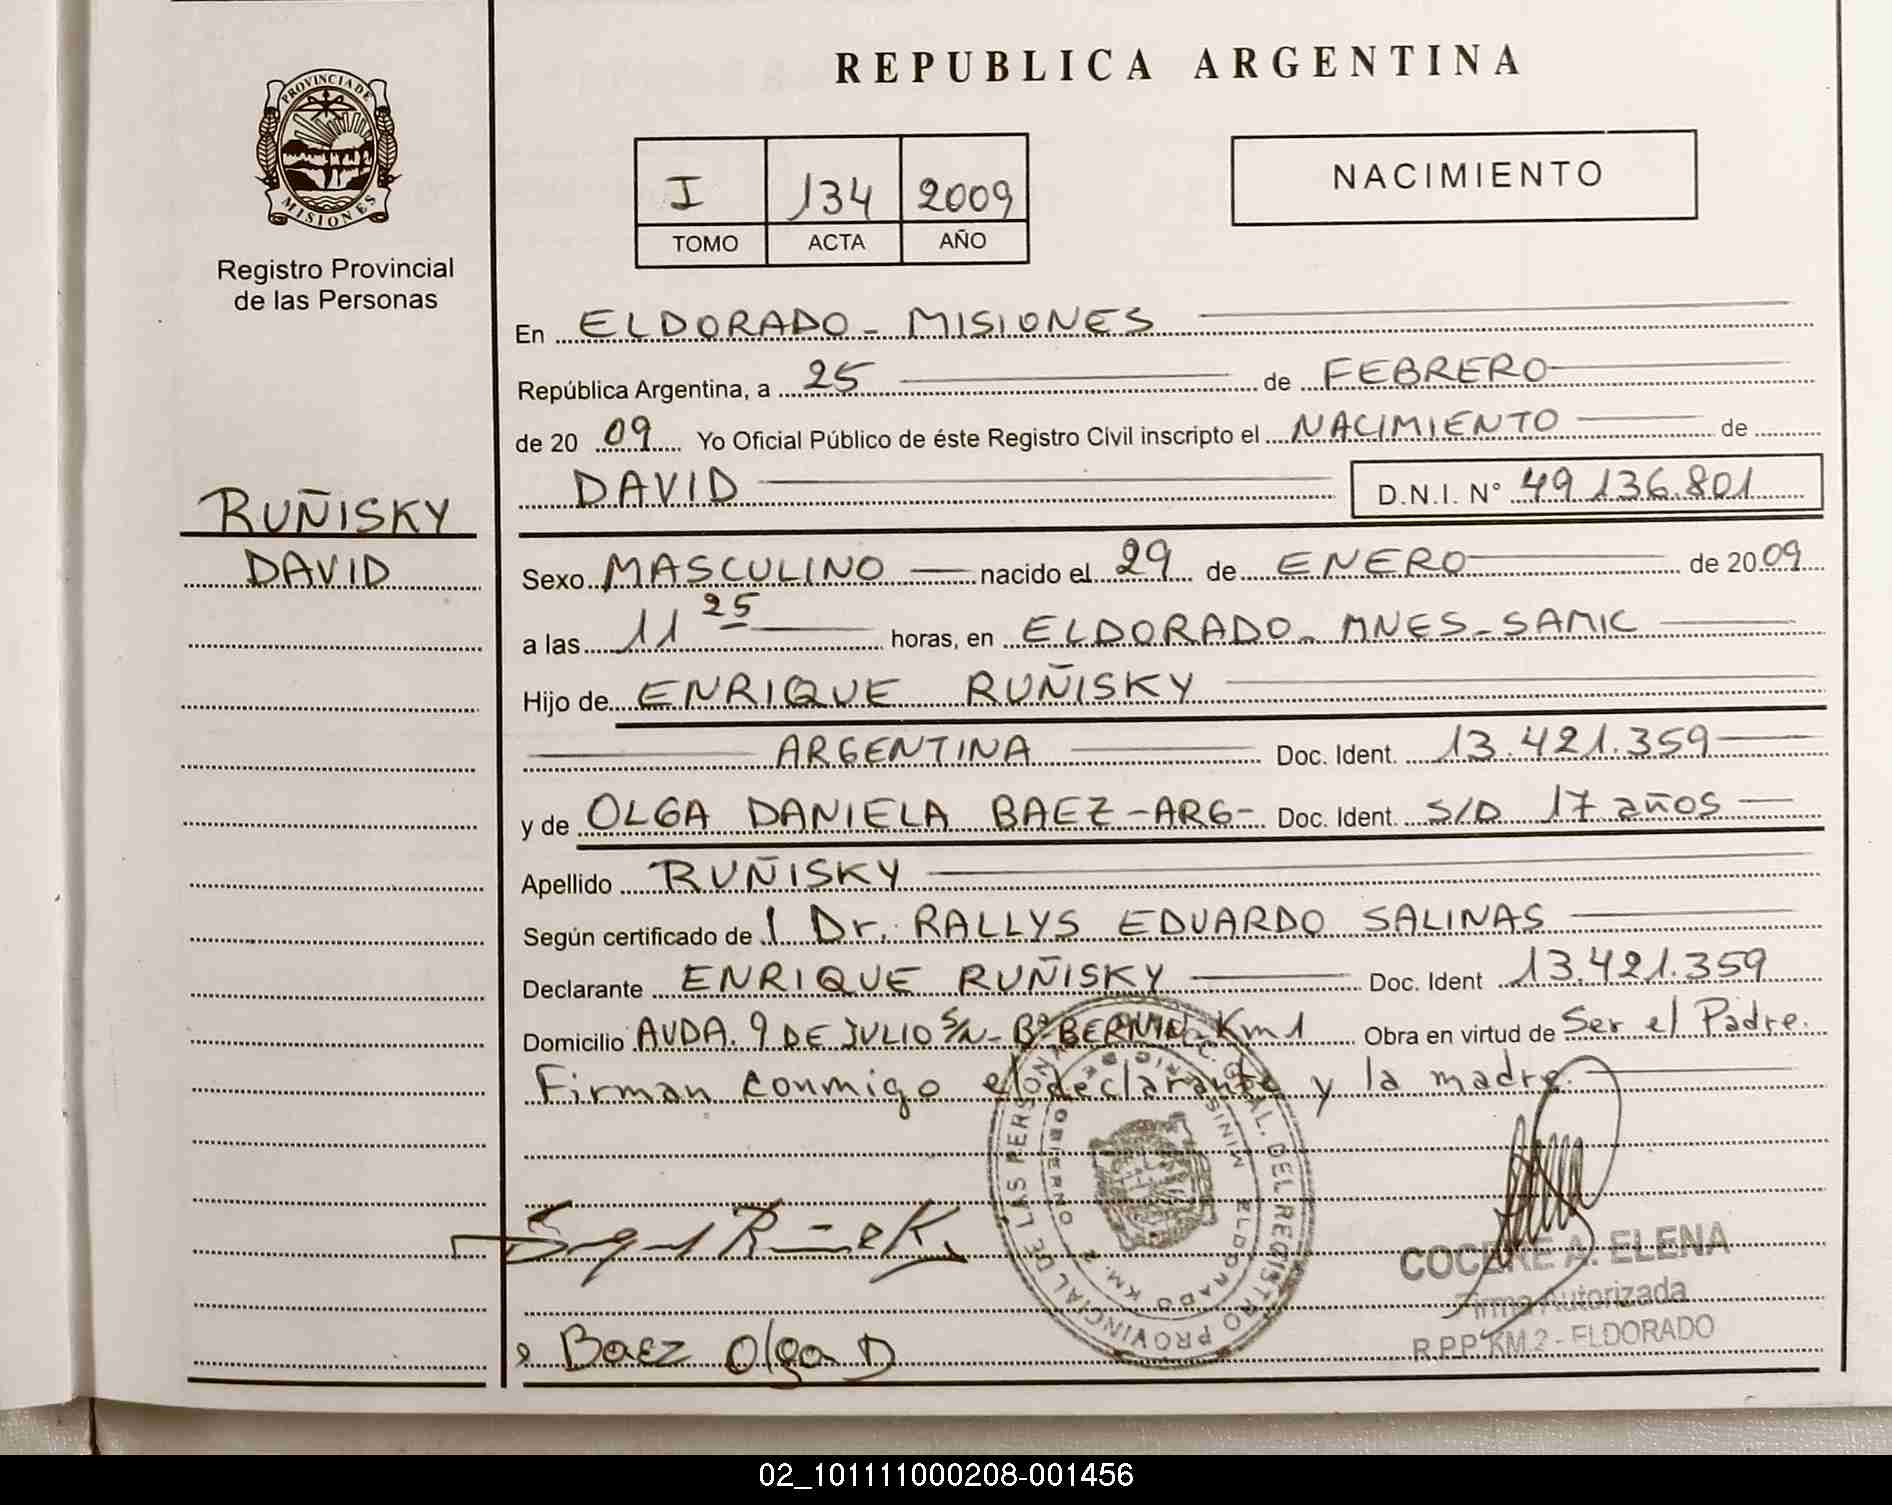 REPUBLICA ARGENTINA
PROVINCIA DE
MISIONES
Registro Provincial
de las Personas
I 134 2009
TOMO ACTA AÑO
NACIMIENTO
RUÑISKY
DAVID
En ELDORADO - MISIONES
República Argentina, a 25 de FEBRERO
de 20 09 Yo Oficial Público de éste Registro Civil inscripto el NACIMIENTO de
DAVID D.N.I. N° 49.136.801
Sexo MASCULINO nacido el 29 de ENERO de 2009
a las 11 25 horas, en ELDORADO - MNES - SAMIC
Hijo de ENRIQUE RUÑISKY
ARGENTINA Doc. Ident. 13.421.359
y de OLGA DANIELA BAEZ - ARG - Doc. Ident. S/D 17 años
Apellido RUÑISKY
Según certificado de 1 Dr. RALLYS EDUARDO SALINAS
Declarante ENRIQUE RUÑISKY Doc. Ident 13.421.359
Domicilio AVDA. 9 DE JULIO S/N - Bº Km 1 Obra en virtud de Ser el Padre.
Firman conmigo el declarante y la madre.
GRAL. DEL REGISTRO PROVINCIAL DE LAS PERSONAS
GOBIERNO
ELDORADO KM. 2
COCERE A. ELENA
Firma Autorizada
R.P.P KM.2 - ELDORADO
Baez Olga D
02_101111000208-001456